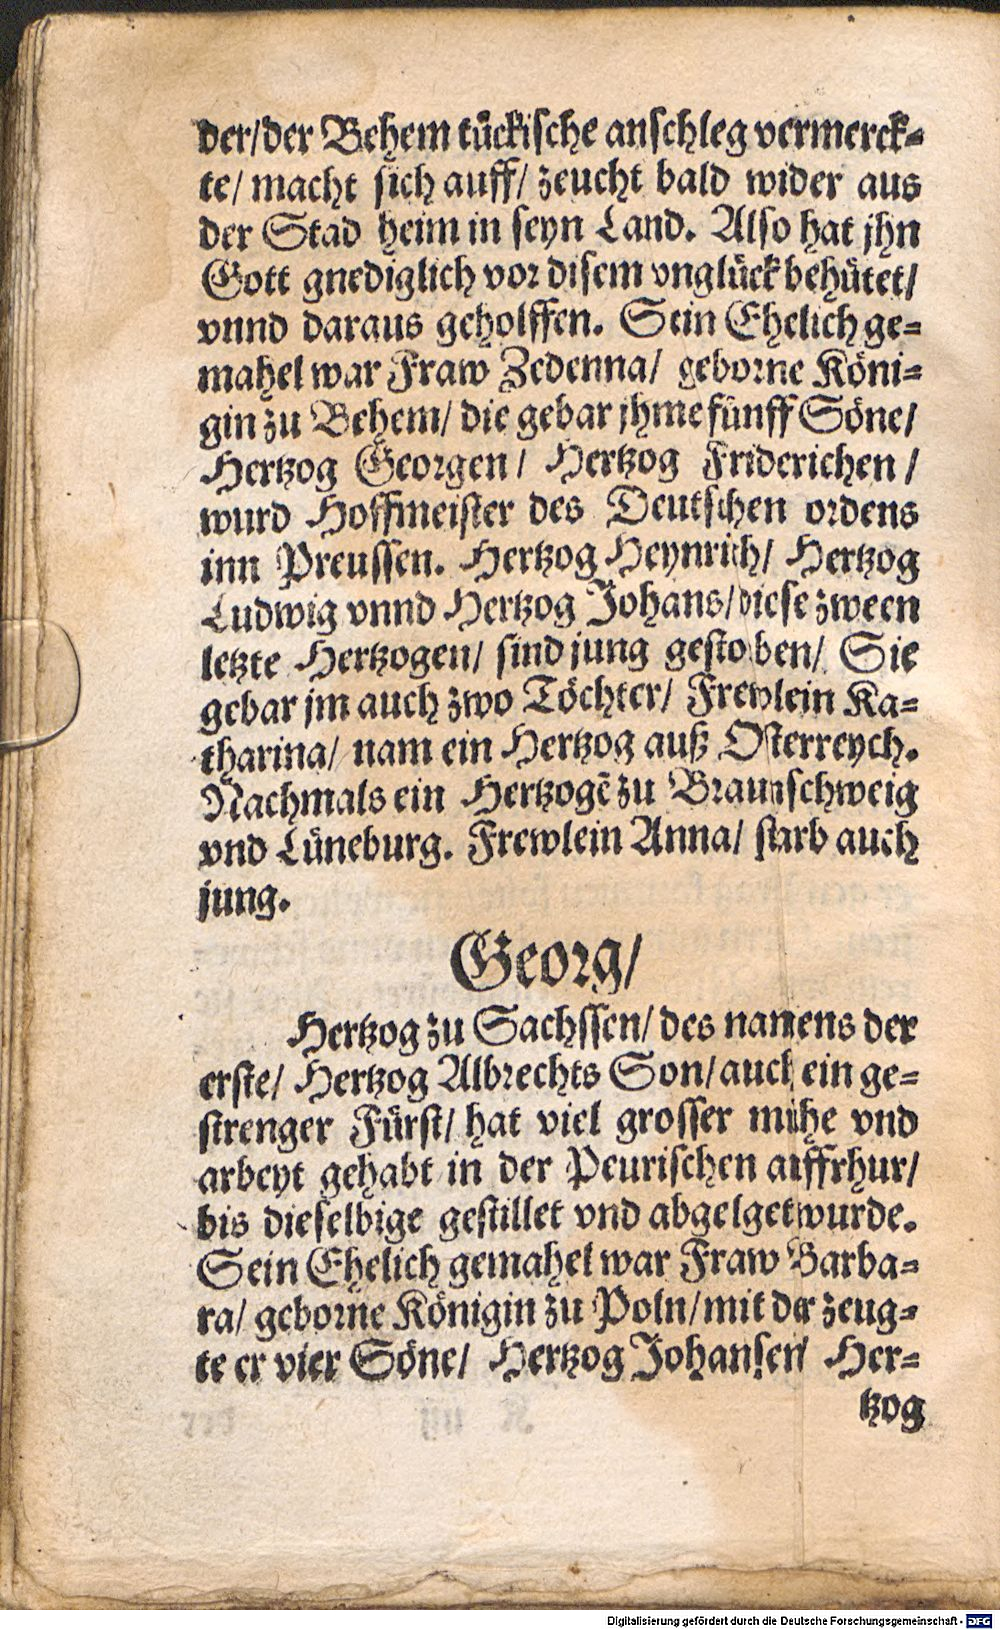 der/der Behem tückische anschleg vermerck-
te/ macht sich auff/ zeucht bald wider aus
der Stad heim in seyn Land. Also hat jhn
Gott gnediglich vor disem vnglück behütet/
vnnd daraus geholffen. Sein Ehelich ge-
mahel war Fraw Zedenna/ geborne Köni-
gin zu Behem/ die gebar jhme fünff Söne/
Hertzog Georgen/ Hertzog Friderichen/
wurd Hoffmeister des Deutschen ordens
inn Preussen. Hertzog Heynrich/ Hertzog
Ludwig vnnd Hertzog Johans/ diese zween
letzte Hertzogen/ sind jung gestorben/ Sie
gebar jm auch zwo Töchter/ Frewlein Ka-
tharina/ nam ein Hertzog auß Osterreych.
Nachmals ein Hertzogē zu Braunschweig
vnd Lüneburg. Frewlein Anna/ starb auch
jung.
Georg/
Hertzog zu Sachssen/ des namens der
erste/ Hertzog Albrechts Son/ auch ein ge-
strenger Fürst/ hat viel grosser mühe vnd
arbeyt gehabt in der Peurischen auffrhur/
bis dieselbige gestillet vnd abgelget wurde.
Sein Ehelich gemahel war Fraw Barba-
ra/ geborne Königin zu Poln/ mit der zeug-
te er vier Söne/ Hertzog Johansen/ Her-
tzog
Digitalisierung gefördert durch die Deutsche Forschungsgemeinschaft - DFG